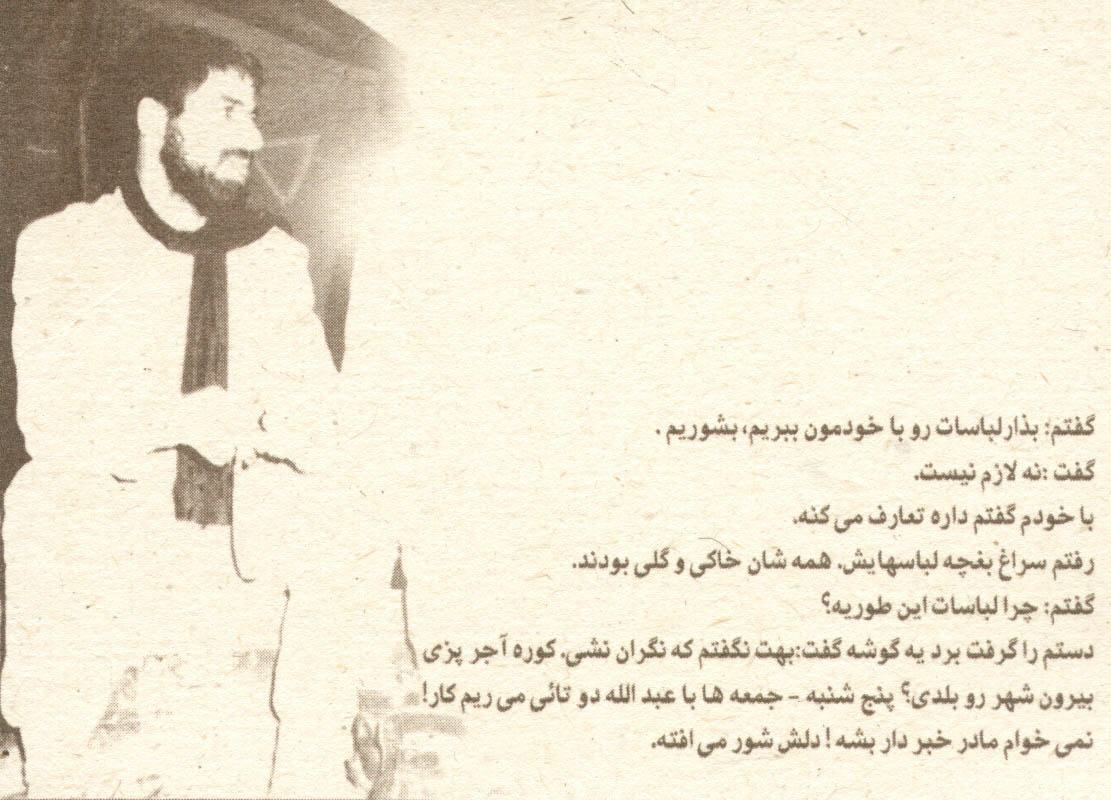 گفتم: بذار لباسات رو با خودمون ببریم، بشوریم .
گفت :نه لازم نیست.
با خودم گفتم داره تعارف می کنه.
رفتم سراغ بغچه لباسهایش. همه شان خاکی و گلی بودند.
گفتم: چرا لباسات این طوریه؟
دستم را گرفت برد یه گوشه گفت:بهت نگفتم که نگران نشی. کوره آجر پزی
بیرون شهر رو بلدی؟ پنج شنبه - جمعه ها با عبد الله دو تائی می ریم کار!
نمی خوام مادر خبر دار بشه ! دلش شور می افته.